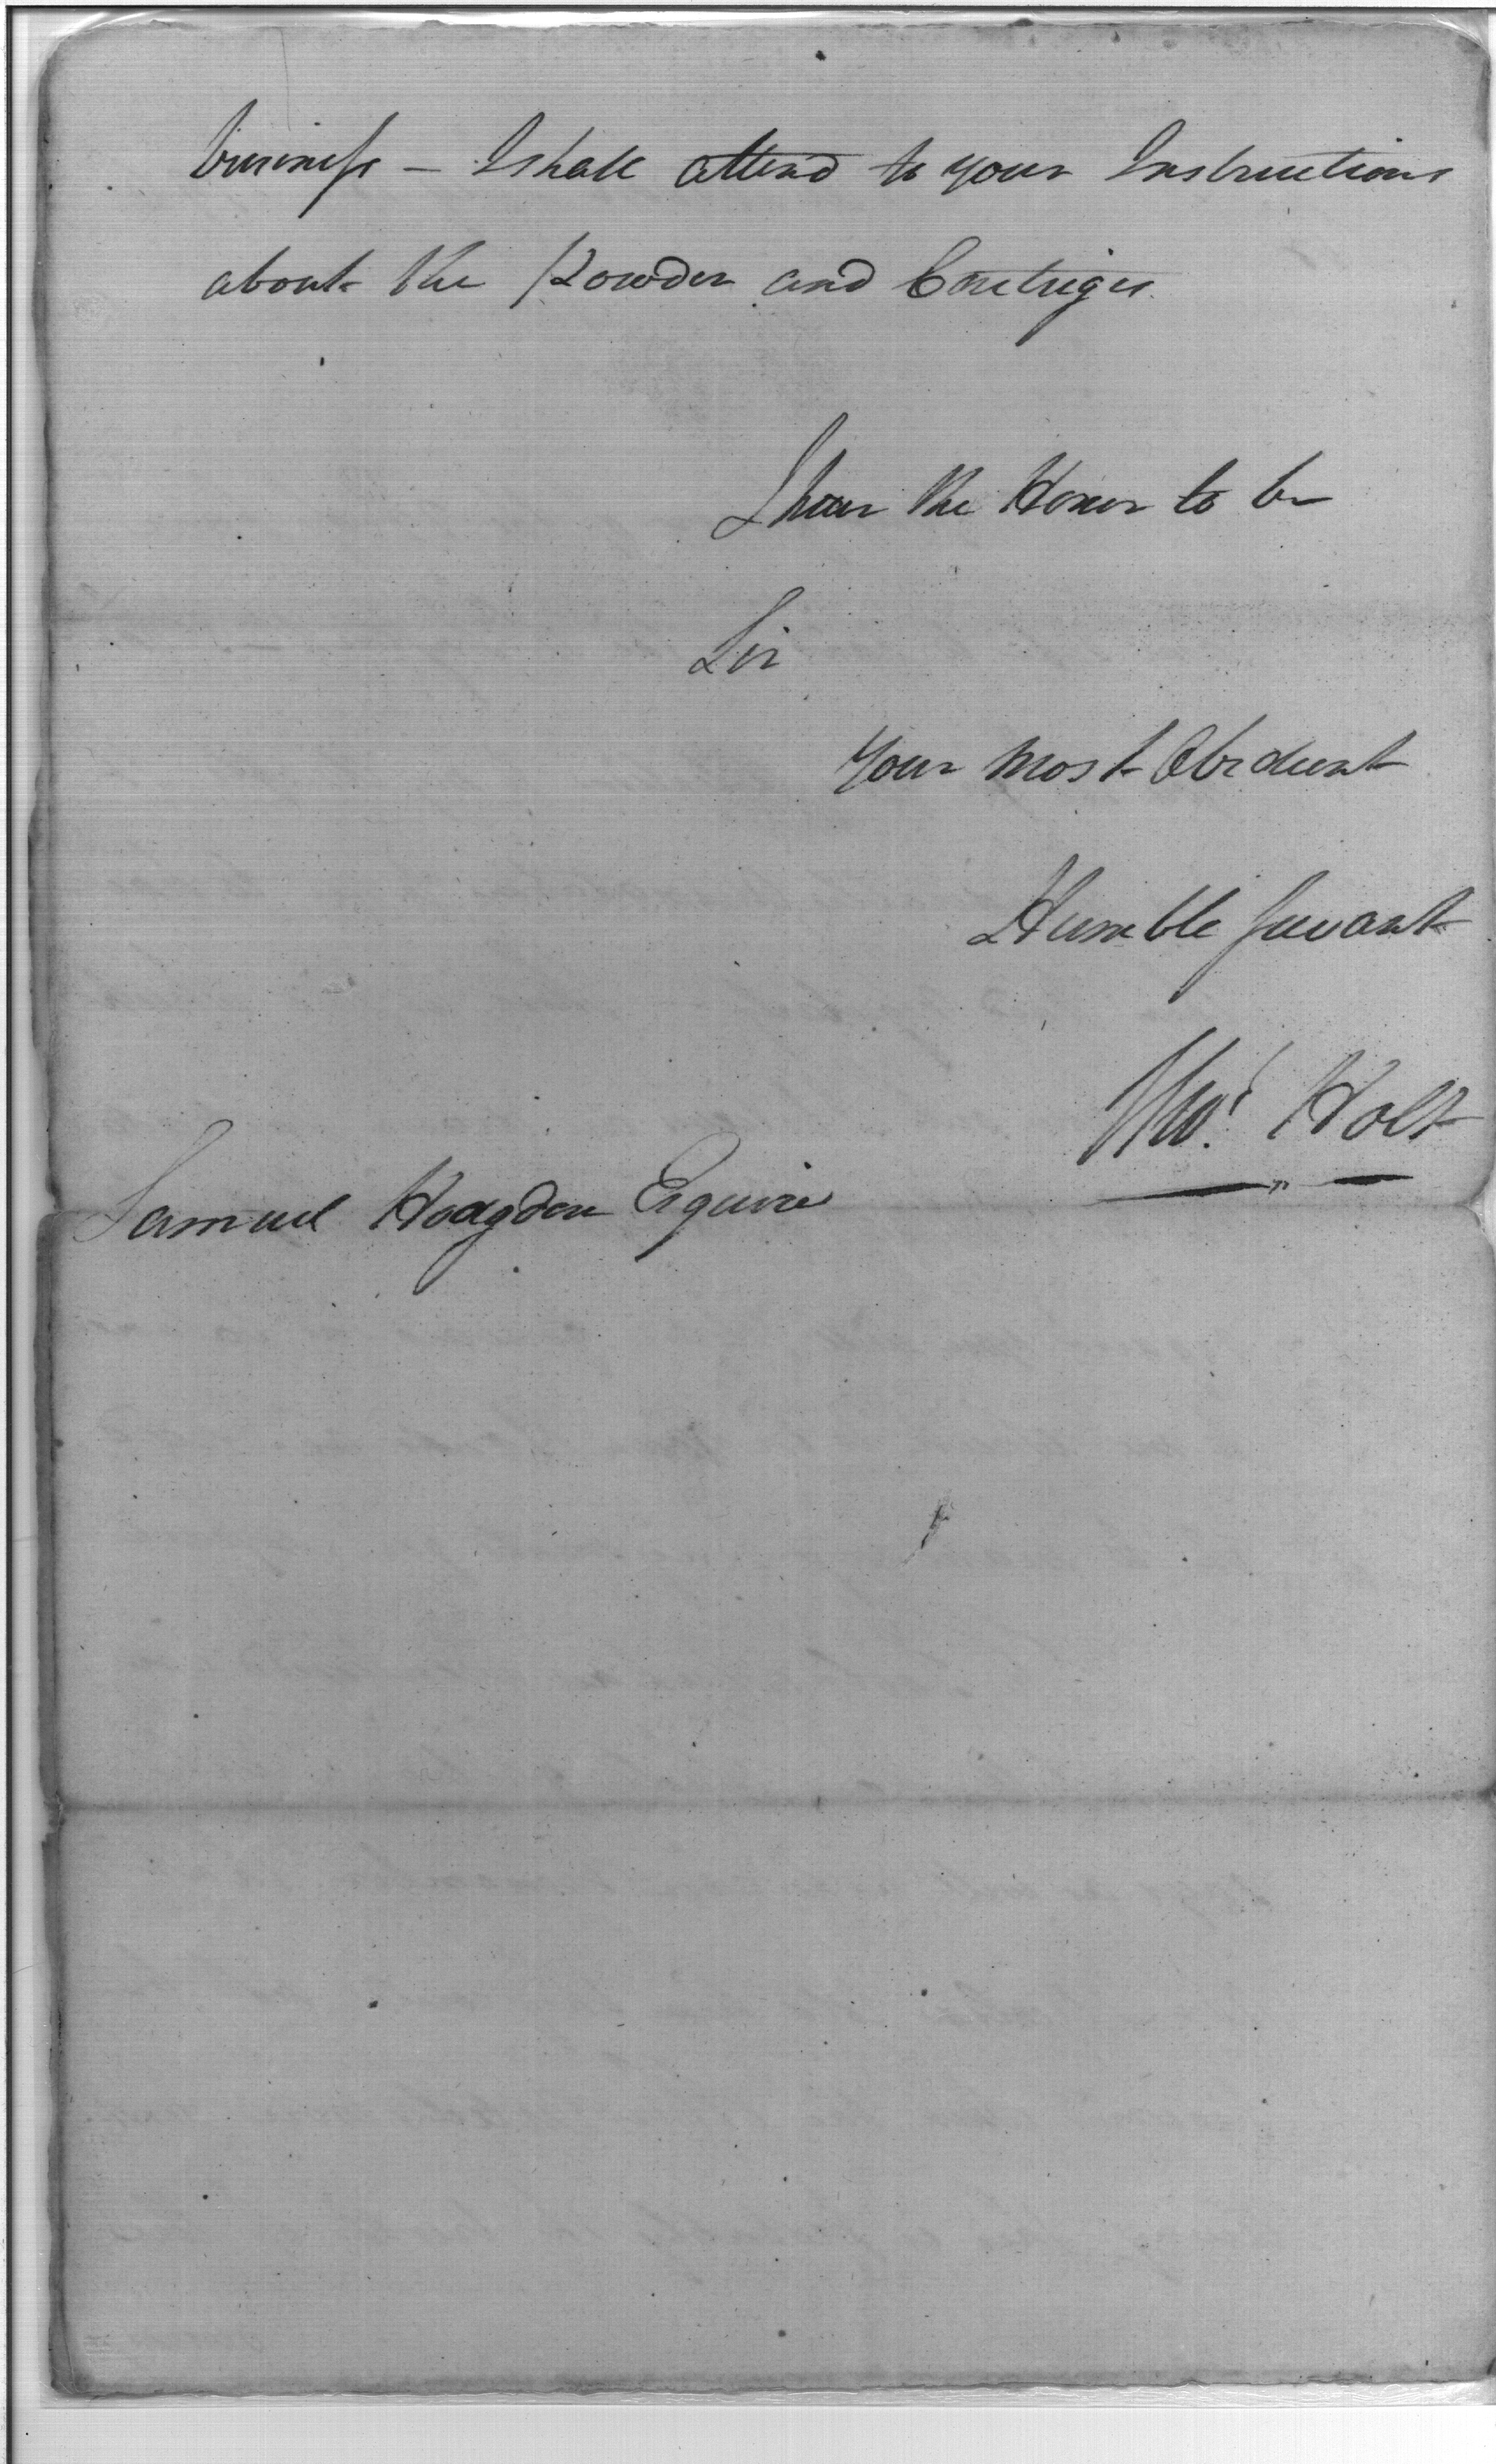 business – I shall attend to your Instructions
about the Powder and Cartriges.
I have the Honor to be
Sir
Your most Obedient
Humble Servant
Thos. Holt
Samuel Hodgdon Esquire